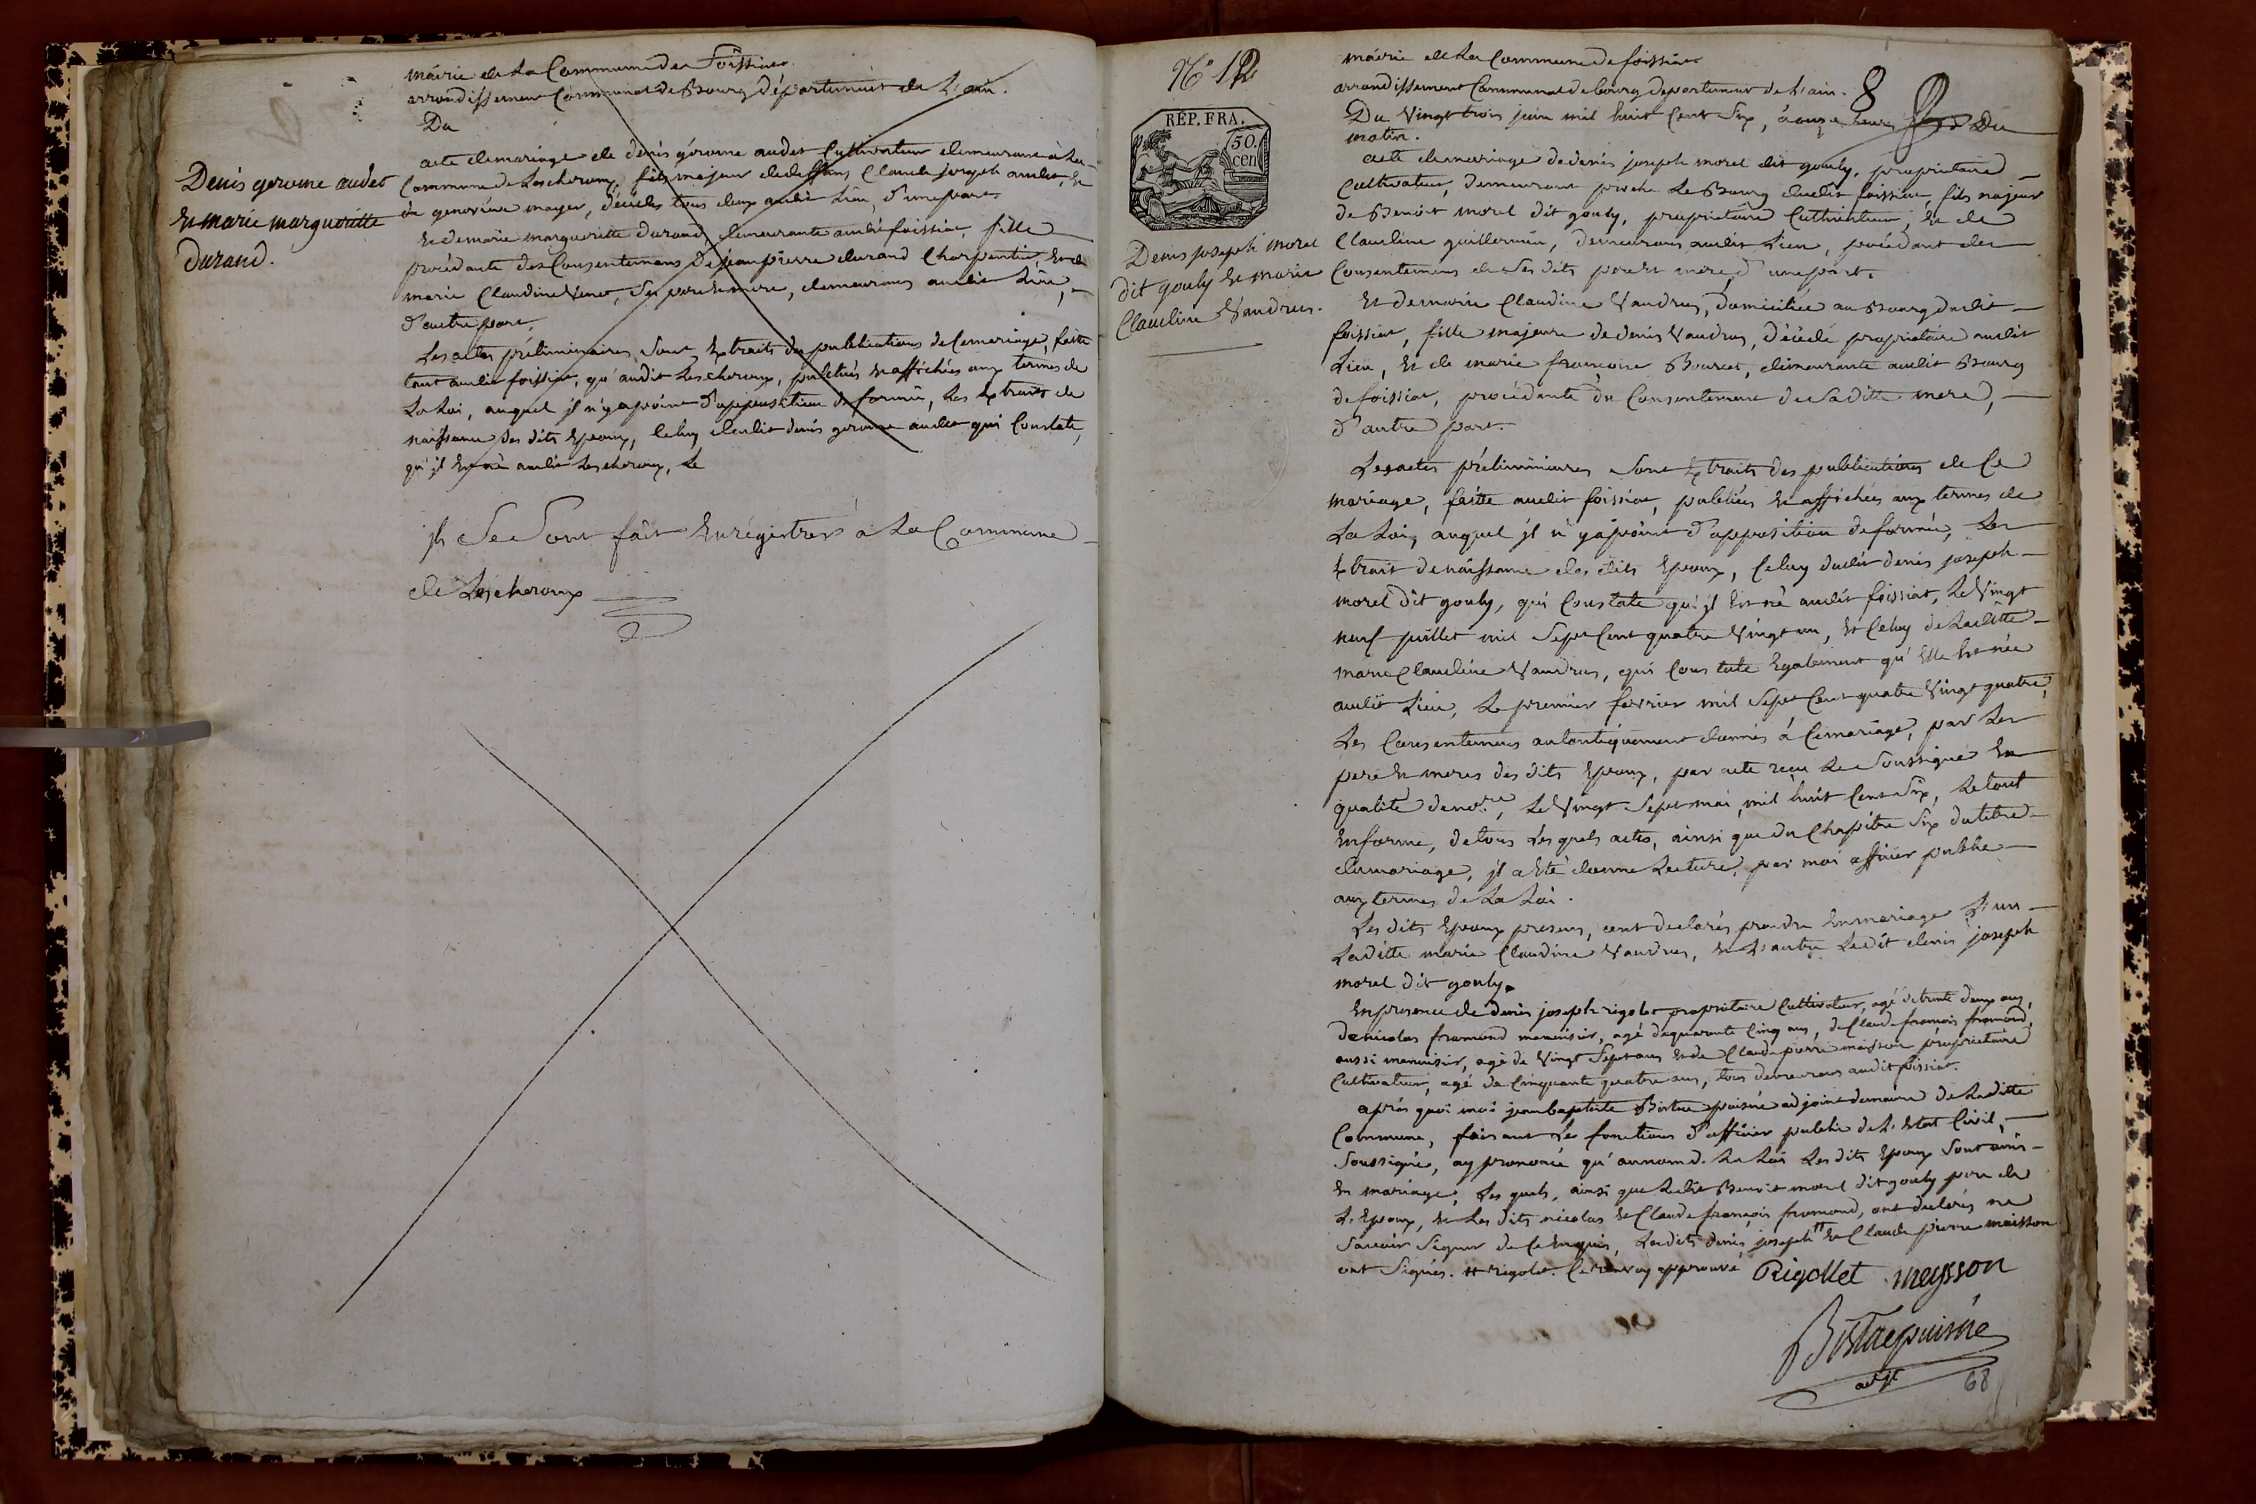 mairie de La Commune de Foissiat
arrondissement Communal de Bourg département de L'ain.
Du
acte de mariage de denis gerome audet Cultivateur demeurant à La
Commune de Lescheroux, fils majeur de deffunt Claude joseph audet, et
de genevieve mayer, décédés tous deux audit Lieu, d'une part
Et de marie margueritte durand, demeurante audit foissiat, fille
procédante des Consentemens de jean pierre durand Charpentier, et de
marie Claudine Venet, ses pere et mere, demeurans audit Lieu,
d'autre part.
Les actes préliminaires sont Extraits des publications de Ce mariage, faite
tant audit foissiat, qu'audit Lescheroux, publiés et affichées aux termes de
La Loi, auquel jl n'y a point d'oppossition de formée, Les Extraits de
naissance des dits Epoux, Celuy dudit denis gerome audet qui Constate,
qu'jl Est né audit Lescheroux, Le
Denis gerome audet
Et marie margueritte
durand.
jls Se Sont fait Enrégistrer à La Commune
de Lescheroux
N.° 12
REP. FRA.
50.
cen
Denis joseph morel
dit gouly et marie
Claudine Vandrus.
mairie de La Commune de foissiat
arrondissement Communal de bourg departement de L'ain.
8
Du Vingt trois juin mil huit Cent Six, à onze heures Du
matin.
acte de mariage de denis joseph morel dit gouly, propriétaire
Cultivateur, demeurant proche Le Bourg dudit foissiat, fils majeur
de Benoit morel dit gouly, propriétaire Cultivateur, et de
Claudine guillermin, demeurans audit Lieu, procédant des
Consentemens de Ses dits pere et mere, d'une part.
Et de marie Claudine Vandrus, domiciliée au Bourg dudit
foissiat, fille majeure de denis Vandrus, décédé propriétaire audit
Lieu, et de marie françoise Bourcet, demeurante audit Bourg
de foissiat, procédante du Consentement de Saditte mere,
d'autre part.
Les actes préliminaires Sont Extraits des publications de Ce
mariage, faitte audit foissiat, publiées et affichées aux termes de
La Loi, auquel jl n'y a point d'opposition de formée, Les
Extrait de naissance des dits Epoux, Celuy dudit denis joseph
morel dit gouly, qui Constate qu'jl Est né audit foissiat, Le Vingt
neuf juillet mil Sept Cent quatre Vingt un, et Celuy de Laditte
marie Claudine Vandrus, qui Constate Egalement qu'Elle Est née
audit Lieu, Le premier fevrier mil Sept Cent quatre Vingt quatre,
Les Consentemens autentiquement donnés à Ce mariage, par Les
pere et meres des dits Epoux, par acte reçu Le Soussigné En
qualité de no.re, Le Vingt Sept mai mil huit Cent Six, Le tout
En forme, de tous Les quels actes, ainsi que du Chapitre Six du titre
du mariage, jl a Eté donné Lecture, par moi officier public
aux termes de La Loi.
Les dits Epoux presens, ont declarés prendre En mariage L'un
Laditte marie Claudine Vandrus, et L'autre Ledit denis joseph
morel dit gouly.
En presence de denis joseph rigolet propriétaire Cultivateur, agé de trente deux ans,
de nicolas fromond menuisier, agé de quarante Cinq ans, de Claude françois fromond,
aussi menuisier, agé de Vingt Sept ans et de Claude pierre maisson propriétaire
Cultivateur, agé de Cinquante quatre ans, tous demeurans audit foissiat.
après quoi moi jean baptiste Bistac puisné adjoint du maire de Laditte
Commune, faisant Les fonctions d'officier public de L'Etat Civil,
Soussigné, ay prononcé qu'au nom de La Loi Les dits Epoux Sont unis
En mariage, Les quels, ainsi que Ledit Benoit morel dit gouly pere de
L'Epoux, et Les dits nicolas et Claude françois fromond, ont declarés ne
Savoir Signer de Ce Enquis, Les dits denis joseph # et Claude pierre maisson
ont Signés. # rigolet. Ce renvoy approuvé
Rigollet meysson
Bistac puisné
adj.t
68